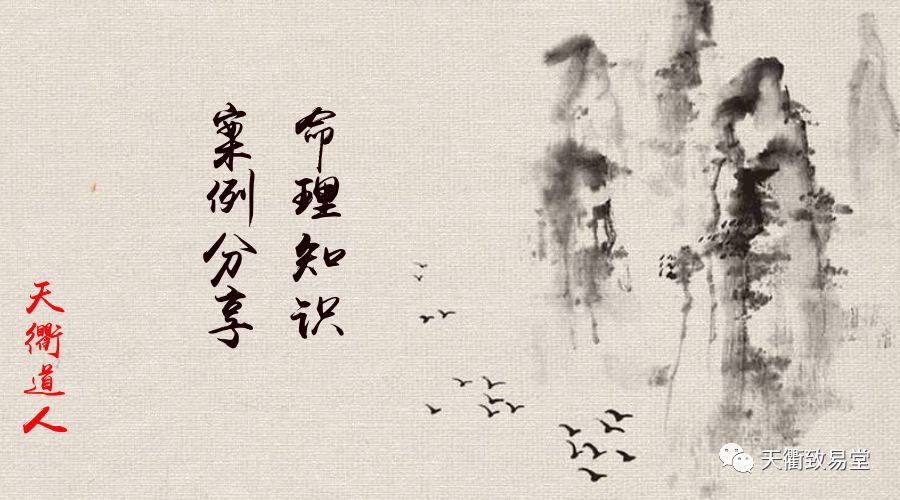 命理知识
案例分享
天衢道人
天衢致易堂